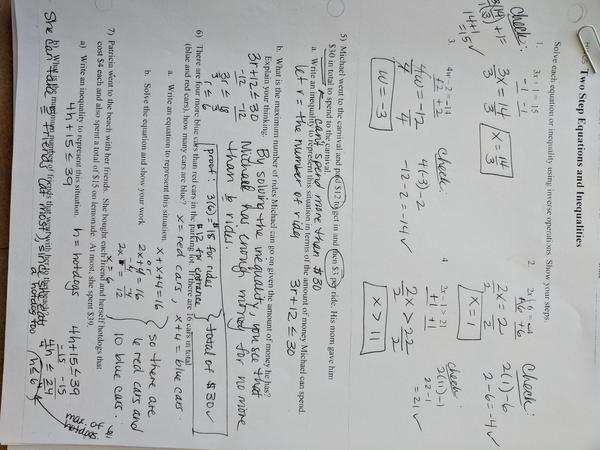 Two Step Equations and Inequalities
Solve each equation or inequality using inverse operations. Show your steps.
1. 3x + 1 = 15
-1 -1
3x = 14
3 3
x = 14/3
check:
3(14/3) + 1 =
14+1
= 15 ✓
2. 2x - 6 = -4
+6 +6
2x = 2
2 2
x = 1
Check:
2(1)-6
2-6=-4 ✓
3. 4w - 2 = -14
+2 +2
4w = -12
4 4
w = -3
check:
4(-3)-2
-12-2=-14 ✓
4. 2x - 1 > 21
+1 +1
2x > 22
2 2
x > 11
check
2(11)-1
22-1
= 21 ✓
5) Michael went to the carnival and paid $12 to get in and then $3 per ride. His mom gave him
$30 in total to spend to the carnival.
can't spend more than $30
a. Write an inequality to represent this situation in terms of the amount of money Michael can spend.
let r = the number of rides
3r+12 ≤ 30
b. What is the maximum number of rides Michael can go on given the amount of money he has?
Explain your thinking.
3r+12 ≤ 30
-12 -12
3r ≤ 18
3 3
r ≤ 6
By solving the inequality, you see that
Michael has enough money for no more
than 6 rides.
proof: 3(6)=$18 for rides
$12 for entrance
total of $30 ✓
6) There are four more blue cars than red cars in the parking lot. If there are 16 cars in total
(blue and red cars), how many cars are blue?
x = red cars, x+4 = blue cars
a. Write an equation to represent this situation.
x + x+4 = 16
or
2x+4 = 16
b. Solve the equation and show your work
2x+4=16
-4 -4
2x = 12
x = 6
so there are
6 red cars and
10 blue cars.
7) Patricia went to the beach with her friends. She bought each friend and herself hotdogs that
cost $4 each and also spent a total of $15 on lemonade. At most, she spent $39.
a) Write an inequality to represent this situation.
h = hotdogs
4h+15 ≤ 39
4h+15 ≤ 39
-15 -15
4h ≤ 24
4 4
h ≤ 6
max. of 6
hotdogs
She can take 5 friends (at most), since she got
a hotdog too